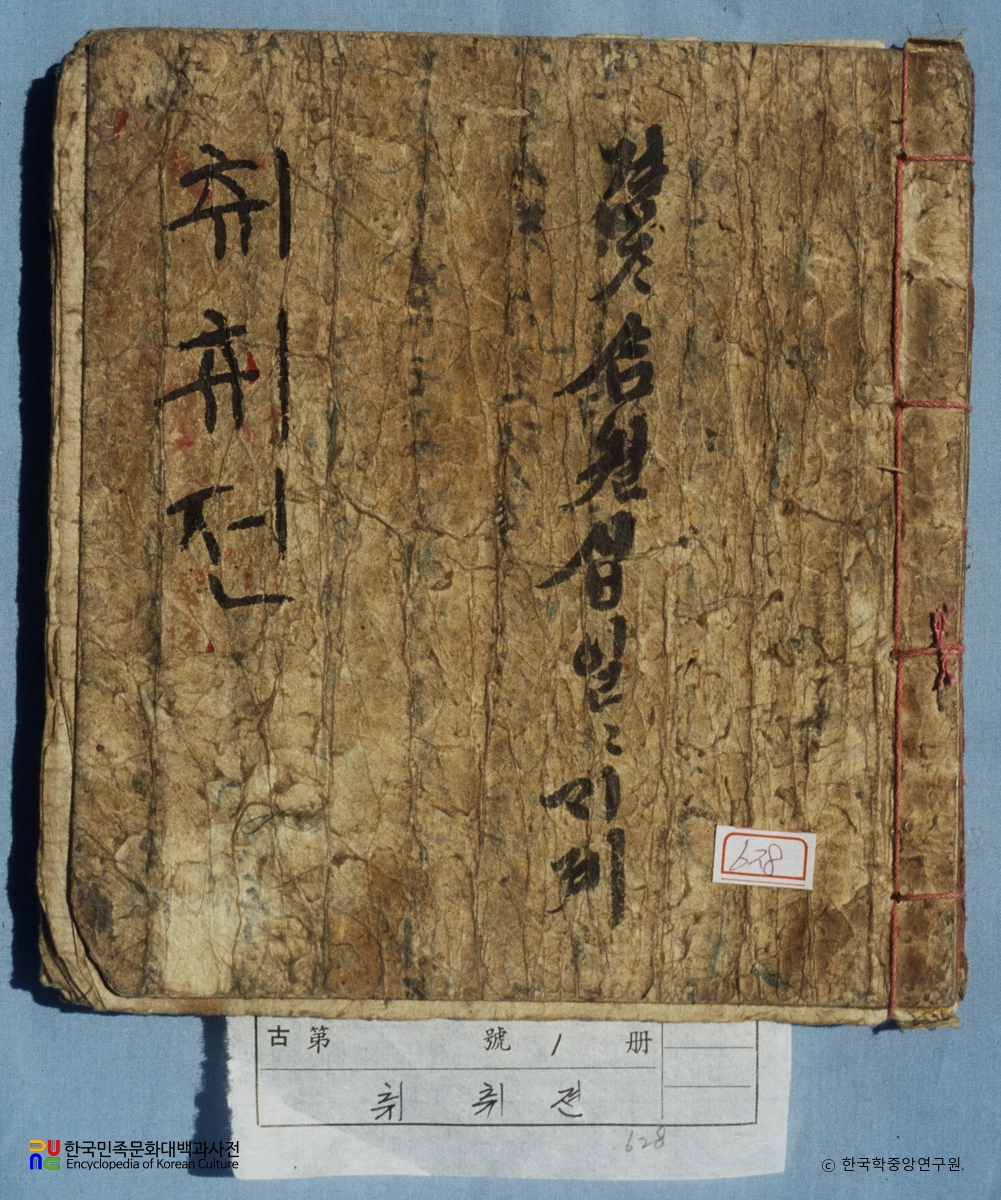 십일
취취전
628
古 第 號 1 册
취 취 젼
628
한국민족문화대백과사전
Encyclopedia of Korean Culture
ⓒ 한국학중앙연구원.